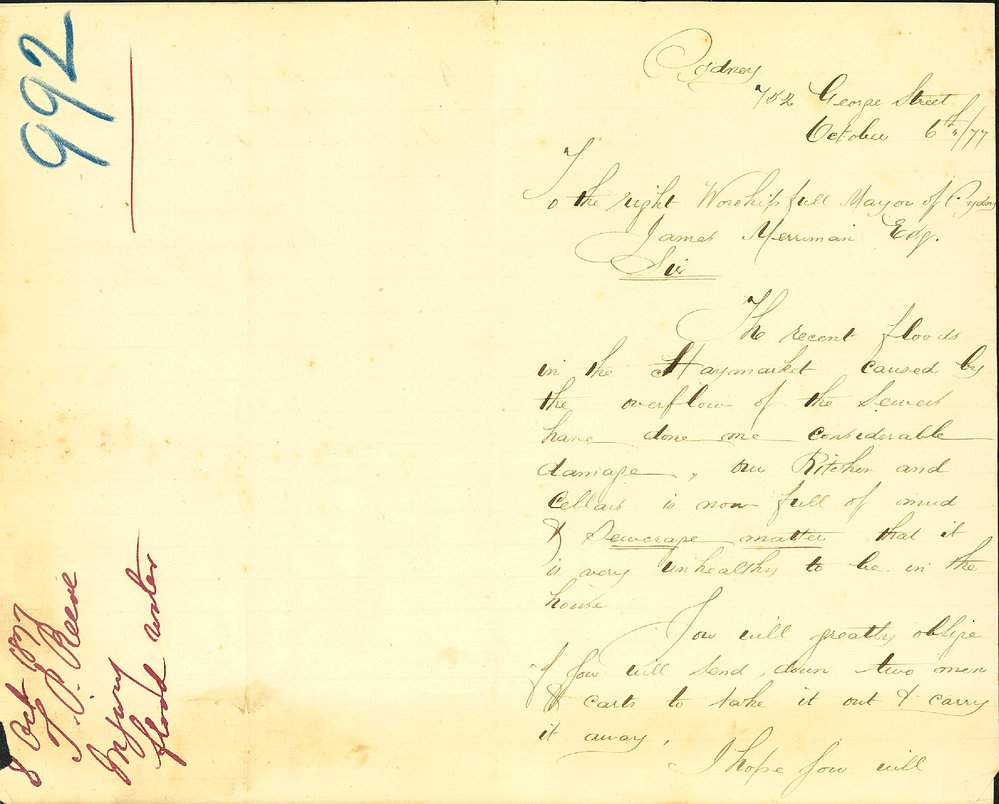 992
8 Oct 1877
T. P. Reeve
Injury
flood water
Sydney
752 George Street
October 6th/77
To the right Worshipfull Mayor of Sydney
James Merriman Esq.
Sir
The recent floods
in the Haymarket caused by
the overflow of the Sewers
have done me considerable
damage, our Kitchen and
Cellars is now full of mud
& Sewerage matter that it
is very unhealthy to be in the
house
You will greatly oblige
if you will send down two men
& carts to take it out & carry
it away,
I hope you will